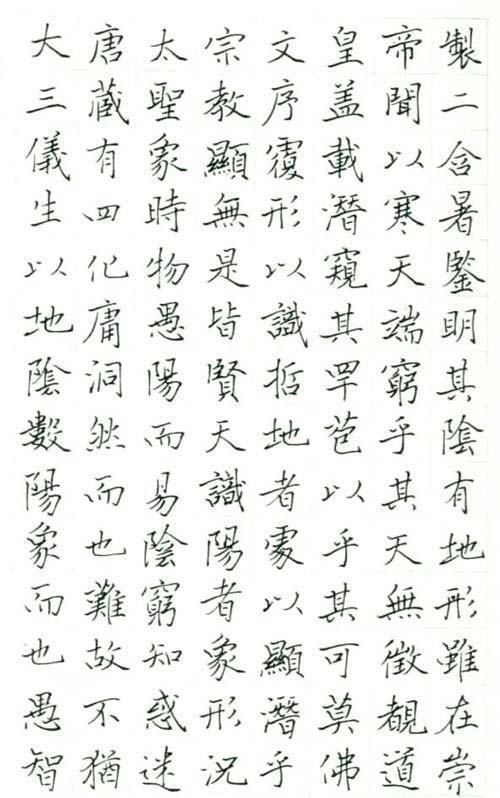 大唐太宗文皇帝製
三藏聖教序盖聞二
儀有象顯覆載以含
生四時無形潛寒暑
以化物是以窺天鑒
地庸愚皆識其端明
陰洞陽賢哲罕窮其
數然而天地苞乎陰
陽而易識者以其有
象也陰陽處乎天地
而難窮者以其無形
也故知象顯可徵雖
愚不惑形潛莫覩在
智猶迷況乎佛道崇